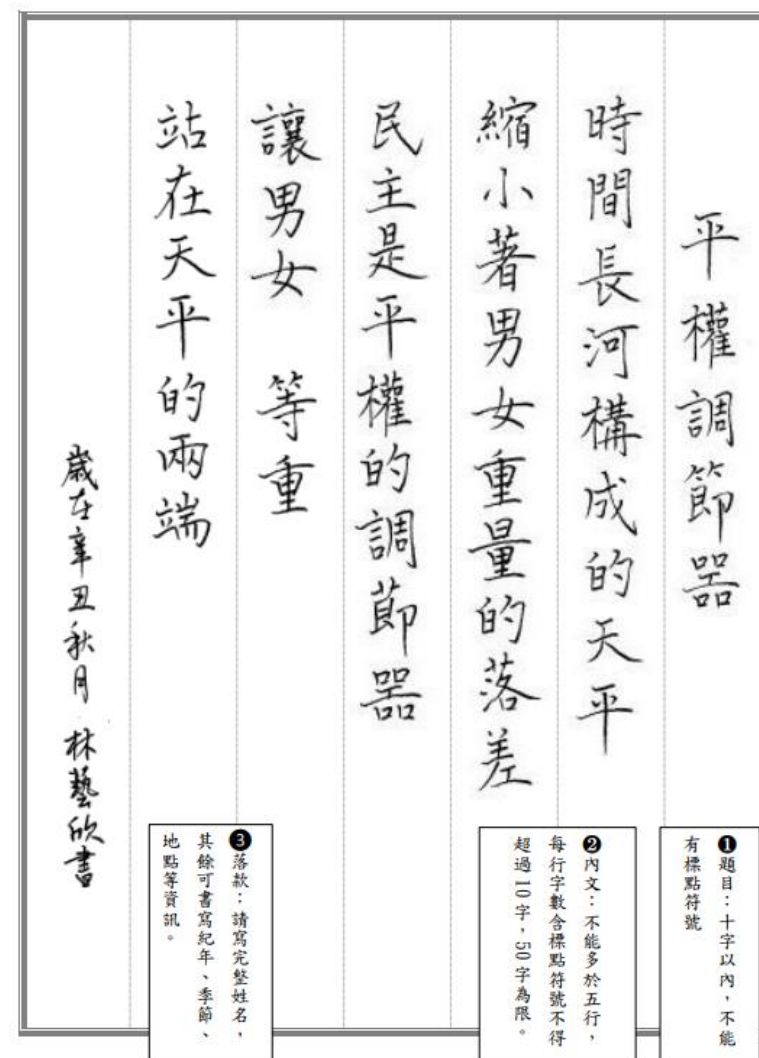 平權調節器
時間長河構成的天平
縮小著男女重量的落差
民主是平權的調節器
讓男女　等重
站在天平的兩端
歲在辛丑秋月 林藝欣書
❶題目：十字以內，不能
有標點符號
❷內文：不能多於五行，
每行字數含標點符號不得
超過10字，50字為限。
❸落款：請寫完整姓名，
其餘可書寫紀年、季節、
地點等資訊。